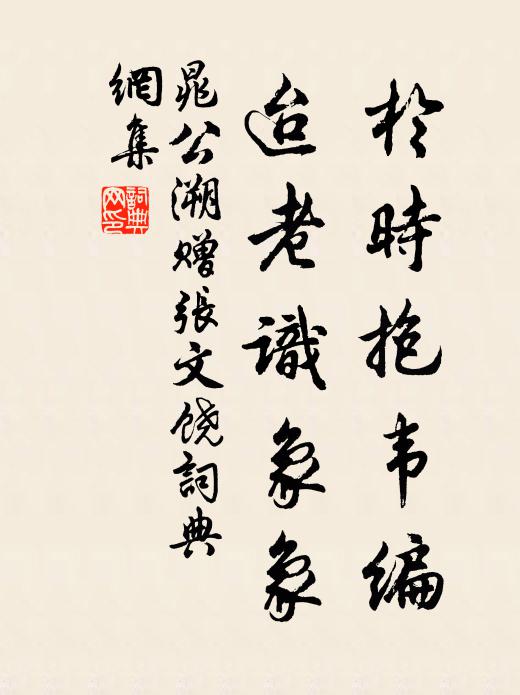 於時抱韦编
迨老識象象
晁公溯贈張文饶詞典
網集
詞典網印